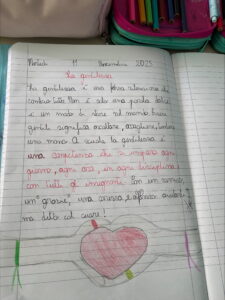 Martedì 11 Novembre 2025
La gentilezza
La gentilezza è una forza silenziosa che
cambia tutto. Non è solo una parola dolce
è un modo di stare nel mondo. Essere
gentili significa ascoltare, accogliere, tendere
una mano. A scuola la gentilezza è
una competenza che si impara ogni
giorno, ogni ora, in ogni disciplina e
con tutti gli insegnanti. Con un sorriso,
un grazie, una carezza
ma tutto col cuore!